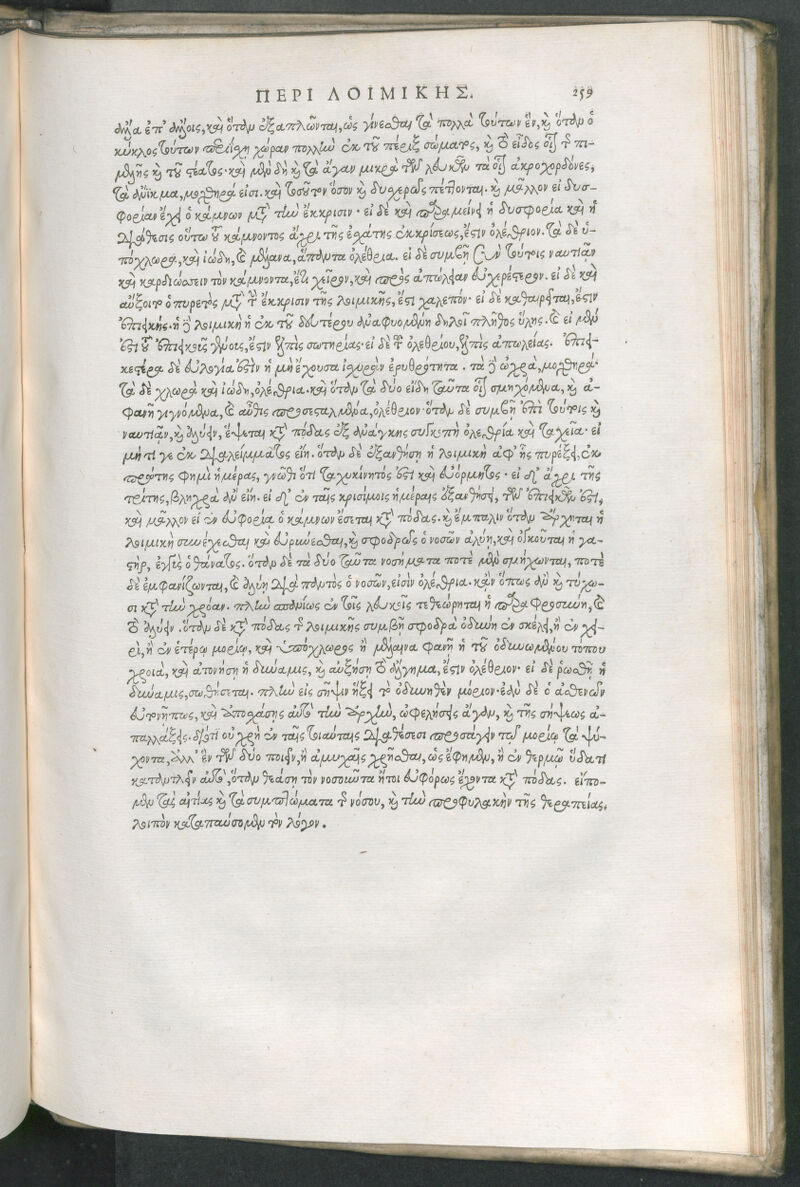 ΠΕΡΙ ΛΟΙΜΙΚΗΣ. 259
ἄλλα ἐπ' ἄλλοις, καὶ ὅταν ἐξαπλῶνται, ὡς γίνεσθαι τὰ πολλὰ τούτων ἓν, καὶ ὅταν ὁ
κύκλος τούτων περιέχῃ χώραν πολλὴν ἐκ τοῦ πέριξ σώματος, καὶ τὸ εἶδος οἷον τῆς πι-
μελῆς καὶ τοῦ στέατος· καὶ μὲν δὴ καὶ τὰ ἄγαν μικρὰ τῶν λευκῶν τὰ οἷον ἀκροχορδόνες,
μοχθηρά εἰσι. καὶ τοσοῦτον ὅσον καὶ δυσχερῶς πέττονται. καὶ μᾶλλον εἰ δυσ-
φορίαν ἔχῃ ὁ κάμνων μετὰ τὴν ἔκκρισιν· εἰ δὲ καὶ παραμείνῃ ἡ δυσφορία καὶ ἡ
διάθεσις οὕτω τοῦ κάμνοντος ἄχρι τῆς ἐσχάτης ἐκκρίσεως, ἔστιν ὀλέθριον. τὰ δὲ ὑ-
πόχλωρα, καὶ ἰώδη, καὶ μέλανα, ἅπαντα ὀλέθρια. εἰ δὲ συμβῇ σὺν τούτοις ναυτιᾷν
καὶ καρδιώσσειν τὸν κάμνοντα, ἔτι χεῖρον, καὶ πρὸς ἀπώλειαν εὐχερέστερον. εἰ δὲ καὶ
αὔξοιτο ὁ πυρετὸς μετὰ τὴν ἔκκρισιν τῆς λοιμικῆς, ἔστι χαλεπόν· εἰ δὲ καθαιρεῖται, ἔστιν
ἐπιεικής. ἡ γὰρ λοιμικὴ ἡ ἐκ τοῦ δευτέρου ἀναφυομένη δηλοῖ πλῆθος ὕλης. καὶ εἰ μὲν
ἐστι τοῦ ἐπιεικοῦς γένους, ἔστιν ἐλπὶς σωτηρίας· εἰ δὲ τοῦ ὀλεθρίου, ἐλπὶς ἀπωλείας. ἐπιει-
κεστέρα δὲ εὐλογία ἐστὶν ἡ μὴ ἔχουσα ἰσχυρὰν ἐρυθρότητα. τὰ γὰρ ὠχρὰ, μοχθηρά·
τὰ δὲ χλωρὰ καὶ ἰώδη, ὀλέθρια. καὶ ὅταν τὰ δύο εἴδη ταῦτα οἷον σμηχόμενα, καὶ ἀ-
φανῆ γιγνόμενα, καὶ αὖθις προσεσταλμένα, ὀλέθριον· ὅταν δὲ συμβῇ ἐπὶ τούτοις καὶ
ναυτιᾷν, καὶ ἀλύειν, ἕψεται κατὰ πόδας ἐξ ἀνάγκης συγκοπὴ ὀλεθρία καὶ ταχεῖα· εἰ
μή τι γε ἐκ διαλείμματος εἴη. ὅταν δὲ ἐξανθήσῃ ἡ λοιμικὴ ἀφ' ἧς πυρέξει, ἐκ
πρώτης φημὶ ἡμέρας, γνῶθι ὅτι ταχυκίνητός ἐστι καὶ εὐόρμητος· εἰ δ' ἄχρι τῆς
τρίτης, βληχρὰ ἂν εἴη. εἰ δ' ἐν ταῖς κρισίμοις ἡμέραις ἐξανθήσῃ, τῶν ἐπιεικῶν ἐστι,
καὶ μᾶλλον εἰ ἐν εὐφορίᾳ ὁ κάμνων ἔσεται κατὰ πόδας. καὶ ἔμπαλιν ὅταν ἄρχηται ἡ
λοιμικὴ συνέχεσθαι καὶ εὐρύνεσθαι, καὶ σφοδρῶς ὁ νοσῶν ἀλύῃ, καὶ ὀγκοῦται ἡ γα-
στὴρ, ἐγγὺς ὁ θάνατος. ὅταν δὲ τὰ δύο ταῦτα νοσήματα ποτὲ μὲν σμήχωνται, ποτὲ
δὲ ἐμφανίζωνται, καὶ ἀλύῃ διὰ παντὸς ὁ νοσῶν, εἰσὶν ὀλέθρια. κἂν ὅπως ἂν καὶ τύχω-
σι κατὰ τὴν χρόαν. πλὴν σπανίως ἐν τοῖς λευκοῖς τεθεώρηται ἡ παραφροσύνη, καὶ
τὸ ἀλύειν. ὅταν δὲ κατὰ πόδας τῆς λοιμικῆς συμβῇ σφοδρὰ ὀδύνη ἐν σκέλει, ἢ ἐν χει-
ρὶ, ἢ ἐν ἑτέρῳ μορίῳ, καὶ ὑπόχλωρος ἢ μέλαινα φανῇ ἡ τοῦ ὀδυνωμένου τόπου
χροιὰ, καὶ ἀτονήσῃ ἡ δύναμις, καὶ αὐξήσῃ τὸ ἄλγημα, ἔστιν ὀλέθριον· εἰ δὲ ῥωσθῇ ἡ
δύναμις, σωθήσεται. πλὴν εἰς σῆψιν ἥξει τὸ ὀδυνηθὲν μόριον· ἐὰν δὲ ὁ ἀσθενῶν
εὐτονῇ πως, καὶ ἀποσχάσῃς αὐτὸ τὴν ἀρχὴν, ὠφελήσεις ἄγαν, καὶ τῆς σήψεως ἀ-
παλλάξεις. διότι οὐ χρὴ ἐν ταῖς τοιαύταις διαθέσεσι προσάγειν τῷ μορίῳ τὰ ψύ-
χοντα, ἀλλ' ἓν τῶν δύο ποιεῖν, ἢ ἀμυχαῖς χρῆσθαι, ὡς ἔφημεν, ἢ ἐν θερμῷ ὕδατι
καταντλεῖν αὐτὸ, ὅταν θεάσῃ τὸν νοσοῦντα ἤτοι εὐφόρως ἔχοντα κατὰ πόδας. εἴπο-
μεν τὰς αἰτίας καὶ τὰ συμπτώματα τῆς νόσου, καὶ τὴν προφυλακὴν τῆς θεραπείας.
λοιπὸν καταπαύσομεν τὸν λόγον.